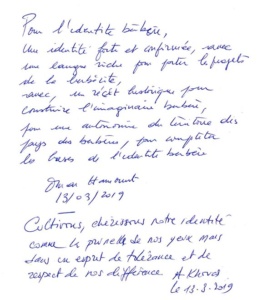 Pour l'identité berbère,
Une identité forte et confirmée, avec
une langue riche pour porter le projet
de la berbérité,
avec, un récit historique pour
construire l'imaginaire berbère,
pour une autonomie du territoire des
pays des berbères, pour compléter
les bases de l'identité berbère
13/03/2019
Cultivons, chérissons notre identité
comme la prunelle de nos yeux mais
dans un esprit de tolérance et de
respect de nos différence A. Khoros
le 13.3.2019